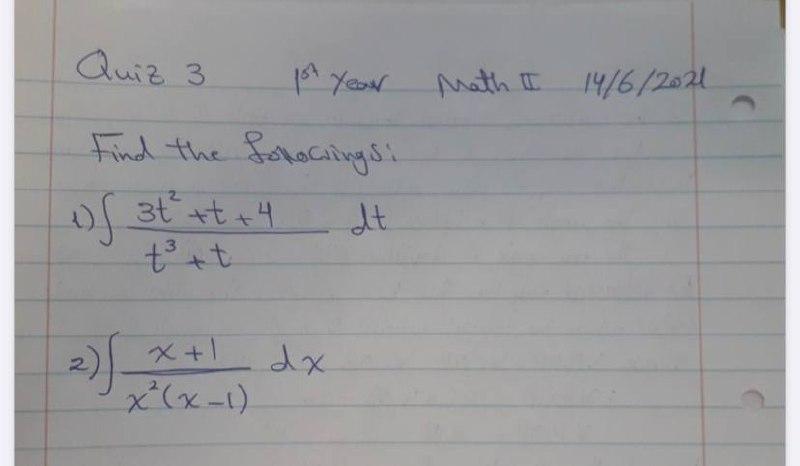 Quiz 3 1st Year Math II 14/6/2021
Find the followings:
1) ∫ (3t² + t + 4)/(t³ + t) dt
2) ∫ (x + 1)/(x²(x - 1)) dx